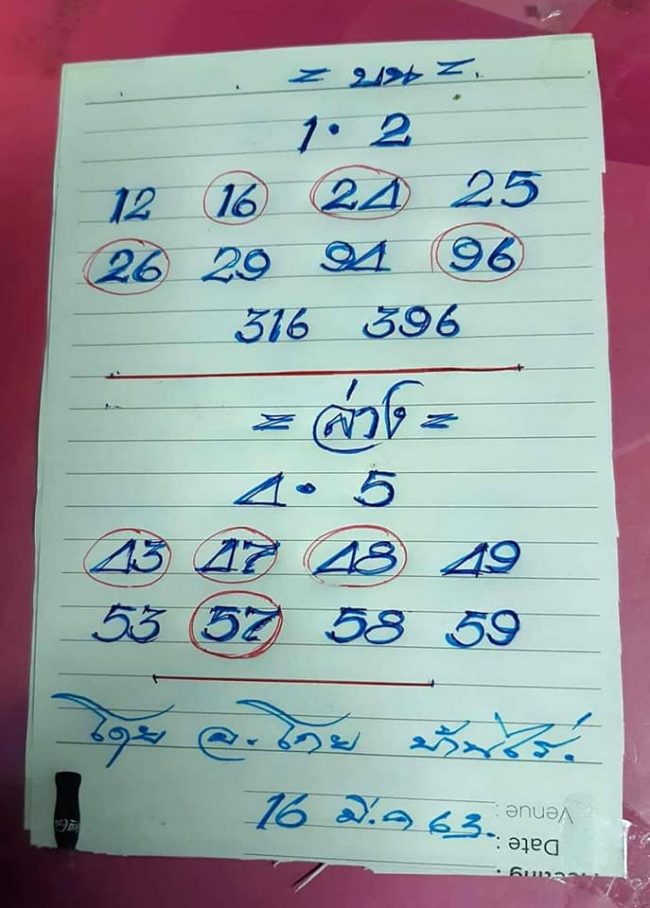 = บน =
1 • 2
12 16 24 25
26 29 94 96
316 396
= ล่าง =
4 • 5
43 47 48 49
53 57 58 59
โดย อ. โกย บ้านไร่.
16 มี.ค 63.
Venue :
Date :